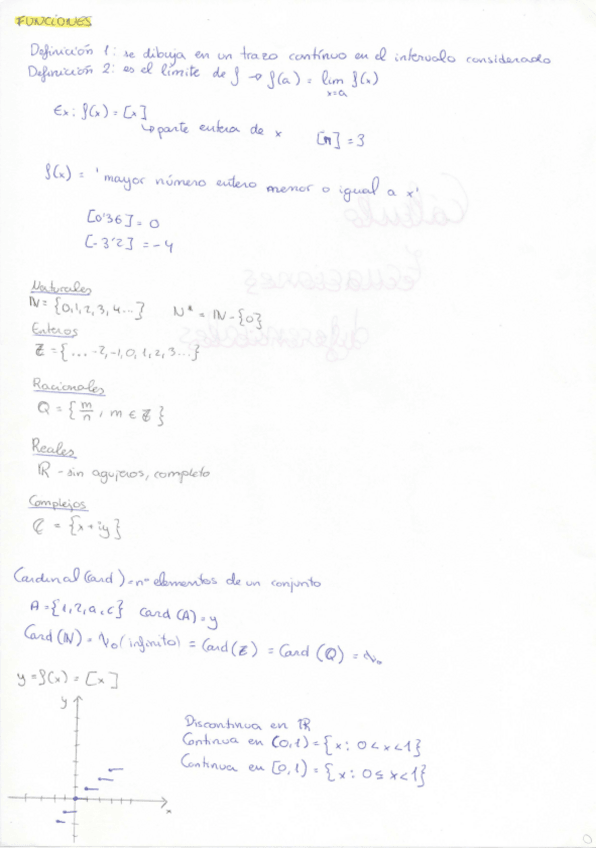 FUNCIONES
Definición 1: se dibuja en un trazo continuo en el intervalo considerado
Definición 2: es el límite de f → f(a) = lim f(x)
x→a
Ex: f(x) = [x]
↳ parte entera de x [π] = 3
f(x) = 'mayor número entero menor o igual a x'
[0'36] = 0
[-3'2] = -4
Naturales
ℕ = {0, 1, 2, 3, 4...} ℕ* = ℕ - {0}
Enteros
ℤ = {... -2, -1, 0, 1, 2, 3...}
Racionales
Q = {m/n, m ∈ ℤ}
Reales
ℝ - sin agujeros, completo
Complejos
ℂ = {x + iy}
Cardinal (Card) = nº elementos de un conjunto
A = {1, 2, a, c} Card (A) = 4
Card (ℕ) = ℵ₀ (infinito) = Card (ℤ) = Card (Q) = ℵ₀
y = f(x) = [x]
y
Discontinua en ℝ
Continua en (0,1) = {x: 0 < x < 1}
Continua en [0,1) = {x: 0 ≤ x < 1}
x